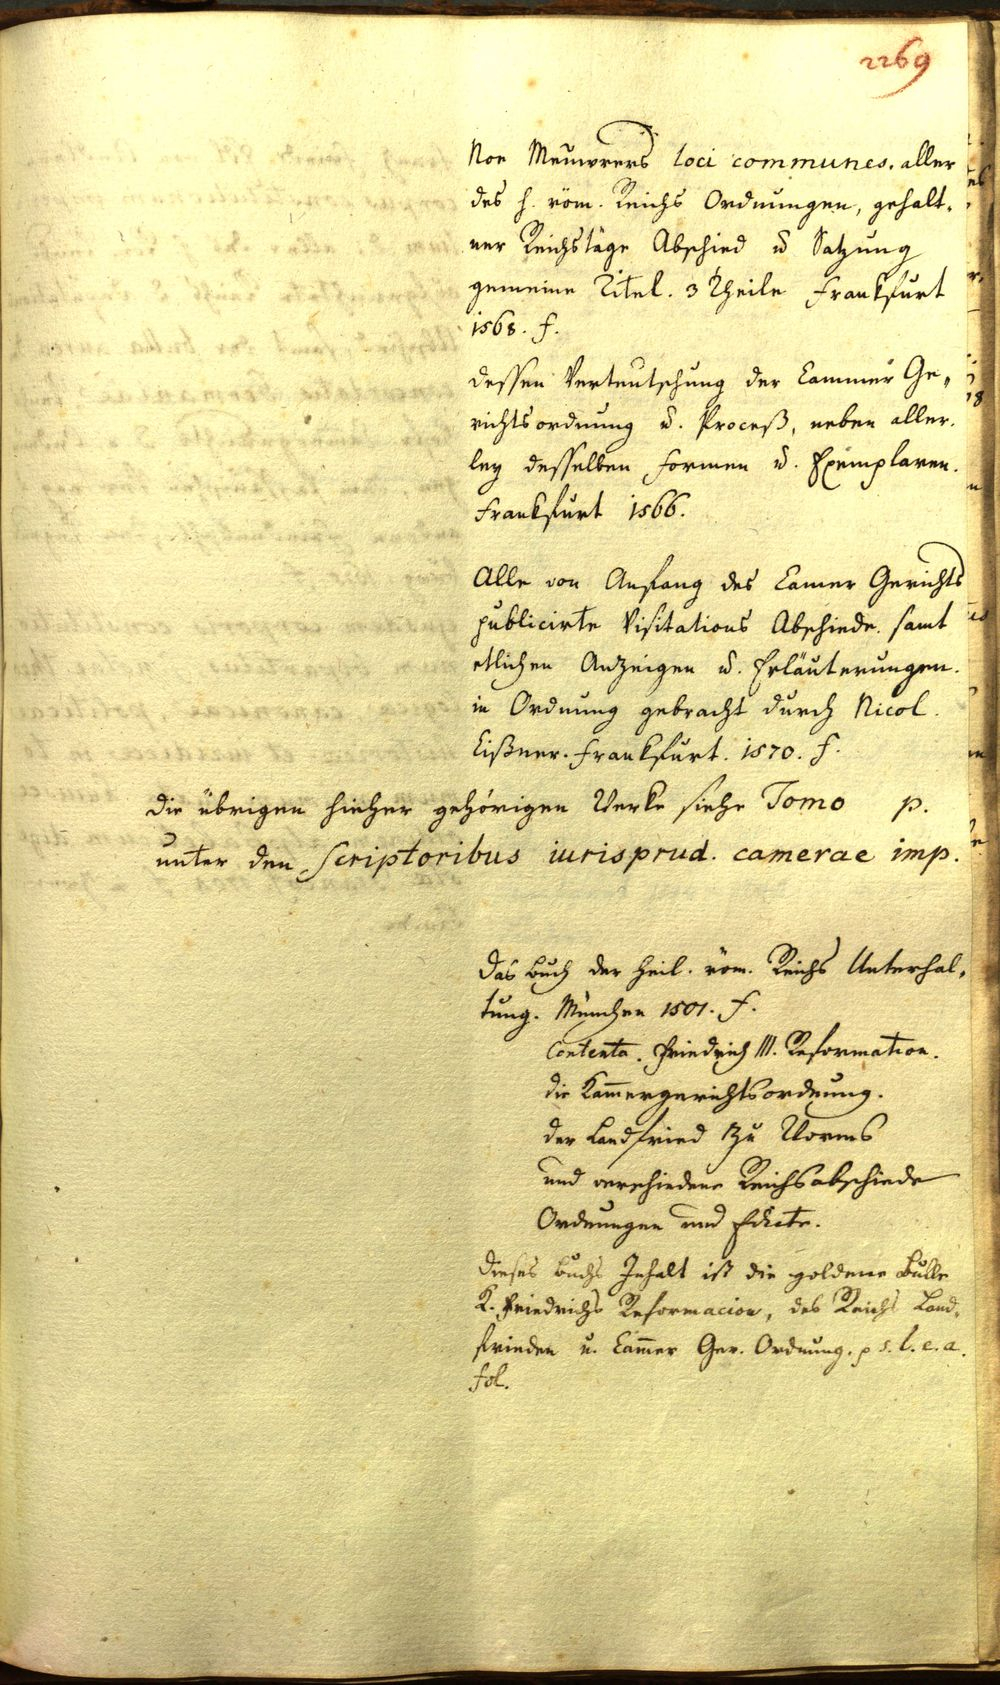 2269
Noe Meurers loci communes. aller
des h. röm. Reichs Ordnungen, gehalt-
ner Reichstäge Abschied u Satzung
gemeine Titel. 3 Theile Frankfurt
1568. f.
dessen Verteutschung der Cammer Ge-
richtsordnung u. Proceß, neben aller-
ley desselben Formen u. Exemplaren.
Frankfurt 1566.
Alle von Anfang des Camer Gerichts
publicirte Visitations Abschiede. samt
etlichen Anzeigen u. Erläuterungen.
in Ordnung gebracht durch Nicol.
Cißner. Frankfurt. 1570. f.
die übrigen hieher gehörigen Werke siehe Tomo p.
unter den Scriptoribus iurisprud. camerae imp.
das Buch der heil. röm. Reichs Unterhal-
tung. München 1501. f.
Contenta. Friedrich III. Reformation.
die Kam̄ergerichtsordnung.
der Landfried zu Worms
und verschiedene Reichsabschiede
Ordnungen und Edicte.
dieses Buchs Inhalt ist die goldene Bulle
K. Friedrichs Reformacion, des Reichs Land-
frieden u. Cam̄er Ger. Ordnung. p s. l. e. a.
fol.